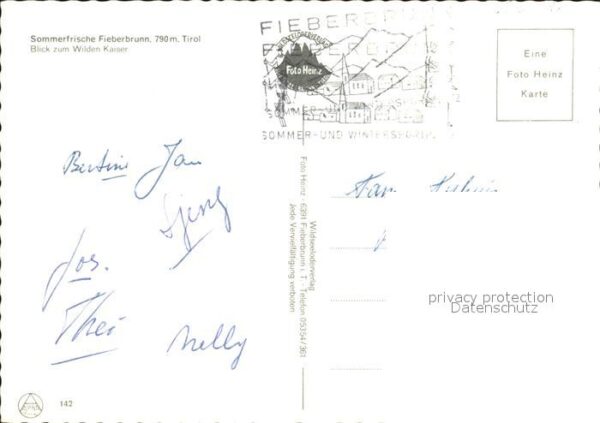 Sommerfrische Fieberbrunn, 790 m, Tirol
Blick zum Wilden Kaiser
FIEBERBRUNN
Foto Heinz
SOMMER-UND WINTERSPORT
Eine
Foto Heinz
Karte
Bertine Jan
Sjeng
Jos.
Theo Nelly
Fam
Wildseeloderverlag
Foto Heinz 6391 Fieberbrunn i. T. - Telefon 05354/361
Jede Vervielfältigung verboten
privacy protection
Datenschutz
142